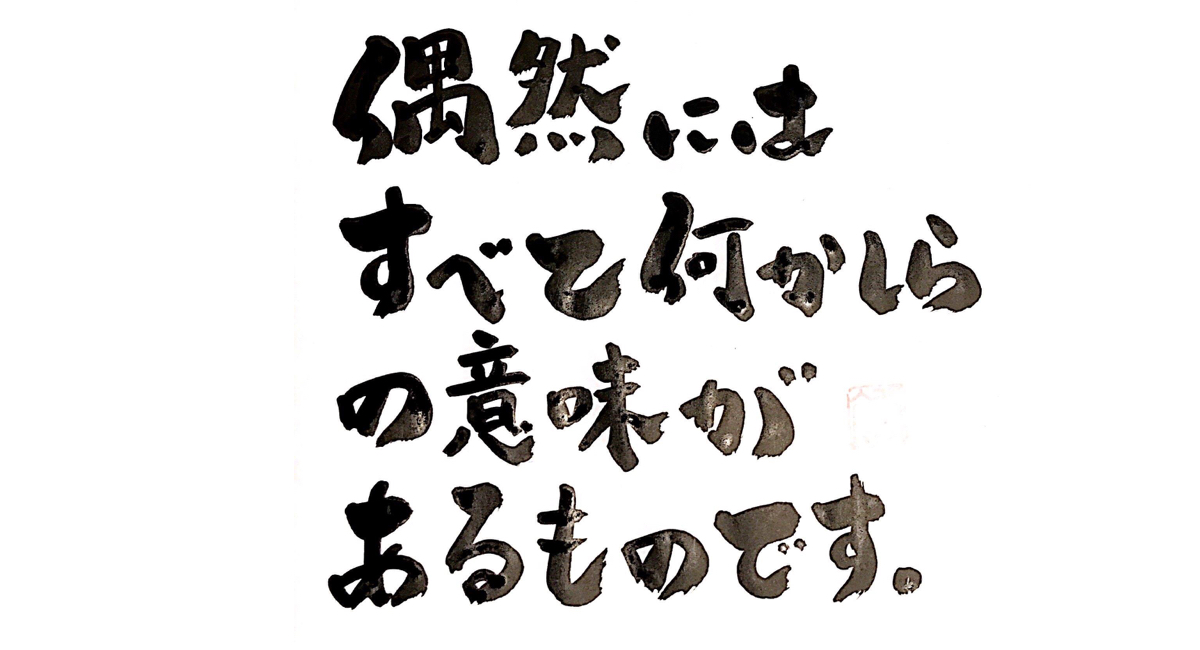 偶然には
すべて何かしら
の意味が
あるものです。